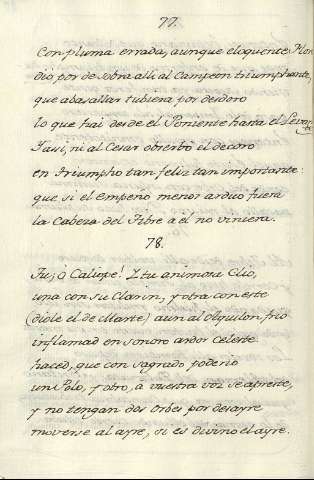 77.
Con pluma errada, aunque eloquente Flon
dio por de sobra alli al Campeon triumphante,
que abasallar tubiera por desdoro
lo que hai desde el Poniente hasta el Levante
Tassi, ni al Cesar obserbò el decoro
en Triumpho tan feliz tan importante:
que si el Empeño menor arduo fuera
la Cabeza del Tibre a èl no viniera.
78.
Tu, ò Caliope! I tu animosa Clio,
una con su Clarin, y otra con este
(diole el de Marte) aun al Olquilon frio
inflamad en sonoro ardor Celeste
haced, que con sagrado poderio
un Polo, y otro, à vuestra voz se apreste,
y no tengan dos Orbes por desayre
moverse al ayre, si es divino el ayre.